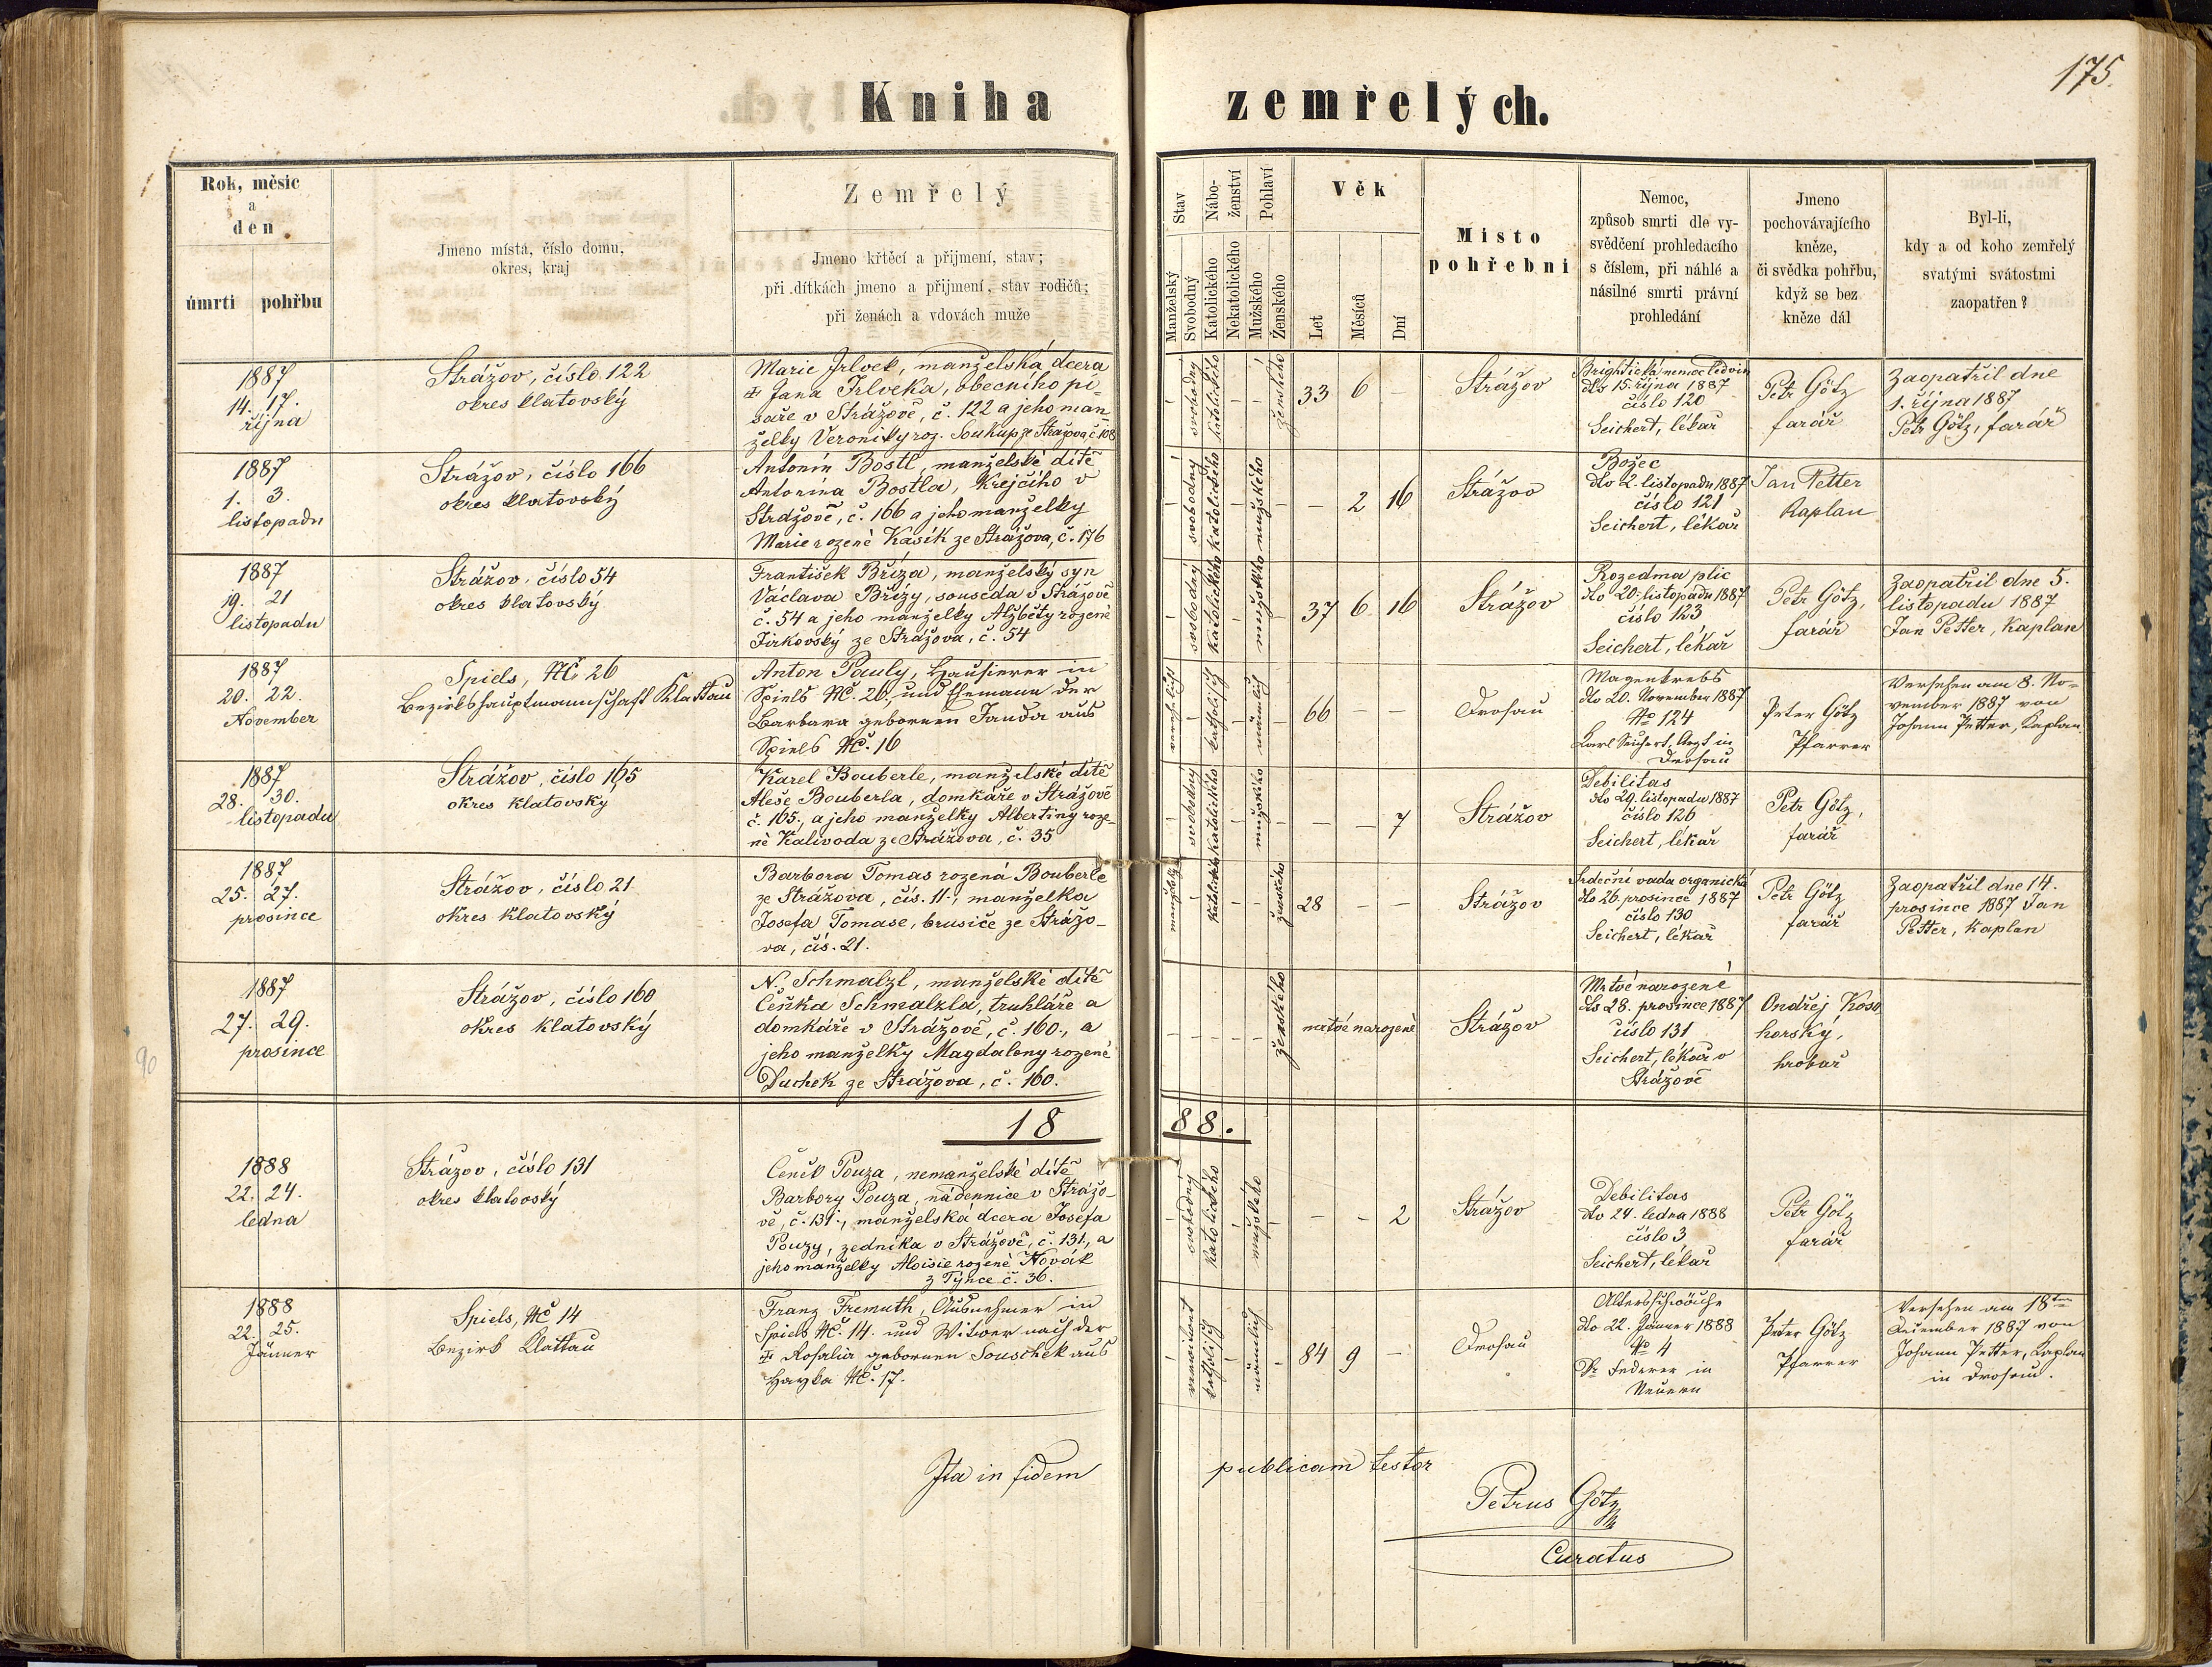 175.
Kniha zemřelých.
Rok, měsíc
a
den
úmrtí pohřbu
Jmeno místa, číslo domu,
okres, kraj
Zemřelý
Jmeno křtěcí a přijmení, stav;
při dítkách jmeno a přijmení, stav rodičů;
při ženách a vdovách muže
Stav
Manželský
Svobodný
Nábo-
ženství
Katolického
Nekatolického
Pohlaví
Mužského
Ženského
Věk
Let
Měsíců
Dní
Místo
pohřební
Nemoc,
způsob smrti dle vy-
svědčení prohledacího
s číslem, při náhlé a
násilné smrti právní
prohledání
Jmeno
pochovávajícího
kněze,
či svědka pohřbu,
když se bez
kněze dál
Byl-li,
kdy a od koho zemřelý
svatými svátostmi
zaopatřen?
1887
14. 17.
října
Strážov, číslo 122
okres klatovský
Marie Jrlvek, manželská dcera
‡ Jana Jrlveka, obecního pí-
saře v Strážově, č. 122 a jeho man
želky Veroniky roz. Soukup ze Strážova, č. 108
svobodný
katolického
ženského
33 6 –
Strážov
Brightická nemoc ledvin
dto 15. října 1887
číslo 120
Seichert, lékař
Petr Götz
farář
Zaopatřil dne
1. října 1887
Petr Götz, farář
1887
1. 3.
listopadu
Strážov, číslo 166
okres klatovský
Antonín Bostl, manželské dítě
Antonína Bostla, krejčího v
Strážově, č. 166 a jeho manželky
Marie rozené Kasík ze Strážova, č. 176
svobodný
katolického
mužského
– 2 16
Strážov
Božec
dto 2. listopadu 1887
číslo 121
Seichert, lékař
Jan Petter
Kaplan
1887
19. 21
listopadu
Strážov, číslo 54
okres klatovský
František Bříza, manželský syn
Václava Břízy, souseda v Strážově
č. 54 a jeho manželky Alžběty rozené
Jirkovský ze Strážova, č. 54
svobodný
katolického
mužského
37 6 16
Strážov
Rozedma plic
dto 20. listopadu 1887
číslo 123
Seichert, lékař
Petr Götz,
farář
Zaopatřil dne 5.
listopadu 1887
Jan Petter, Kaplan
1887
20. 22.
November
Spiels, NC 26
Bezirkshauptmannschaft Klattau
Anton Pauly, Hausierer in
Spiels NC. 26, und Ehemann der
Barbara gebornen Janda aus
Spiels NC. 16
verehelicht
katholisch
männlich
66 – –
Drosau
Magenkrebs
dto 20. November 1887
No 124
Karl Seichert, Arzt in
Drosau
Peter Götz
Pfarrer
Versehen am 8. No-
vember 1887 von
Johann Petter, Kaplan
1887
28. 30.
listopadu
Strážov, číslo 165
okres klatovský
Karel Bouberle, manželské dítě
Aleše Bouberla, domkáře v Strážově
č. 165., a jeho manželky Albertiny roze-
né Kalivoda ze Strážova, č. 35
svobodný
katolického
mužského
– – 7
Strážov
Debilitas
dto 29. listopadu 1887
číslo 126
Seichert, lékař
Petr Götz,
farář
1887
25. 27.
prosince
Strážov, číslo 21
okres klatovský
Barbora Tomas rozená Bouberle
ze Strážova, čís. 11., manželka
Josefa Tomase, brusiče ze Strážo-
va, čís. 21.
katolického
ženského
28 – –
Strážov
Srdeční vada organická
dto 26. prosince 1887
číslo 130
Seichert, lékař
Petr Götz
farář
Zaopatřil dne 14.
prosince 1887 Jan
Petter, Kaplan
1887
27. 29.
prosince
Strážov, číslo 160
okres klatovský
N. Schmalzl, manželské dítě
Čeňka Schmalzla, truhláře a
domkáře v Strážově, č. 160., a
jeho manželky Magdaleny rozené
Duchek ze Strážova, č. 160.
ženského
mrtvé narozené
Strážov
Mrtvé narozené
dto 28. prosince 1887
číslo 131
Seichert, lékař v
Strážově
Ondřej Koso
horský,
hrobař
90
1888.
1888
22. 24.
ledna
Strážov, číslo 131
okres klatovský
Čeněk Pouza, nemanželské dítě
Barbory Pouza, nádennice v Strážo-
vě, č. 131., manželská dcera Josefa
Pouzy, zedníka v Strážově, č. 131., a
jeho manželky Aloisie rozené Novák
z Týnce č. 36.
svobodný
katolického
mužského
– – 2
Strážov
Debilitas
dto 24. ledna 1888
číslo 3
Seichert, lékař
Petr Götz
farář
1888
22. 25.
Jänner
Spiels, NC 14
Bezirk Klattau
Franz Fremuth, Ausnehmer in
Spiels NC. 14. und Witwer nach der
‡ Rosalia gebornen Souschek aus
NC. 17.
verwitwet
katholisch
männlich
84 9 –
Drosau
Altersschwäche
dto 22. Jänner 1888
No 4
Dr Federer in
Neuern
Peter Götz
Pfarrer
Versehen am 18ten
Dezember 1887 von
Johann Petter, Kaplan
in Drosau.
Ita in fidem publicam testor
Petrus Götz
Curatus